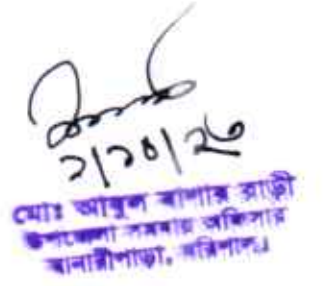 ২/১০/২৩
মোঃ আবুল বাশার রাড়ী
উপজেলা সমবায় অফিসার
বানারীপাড়া, বরিশাল।